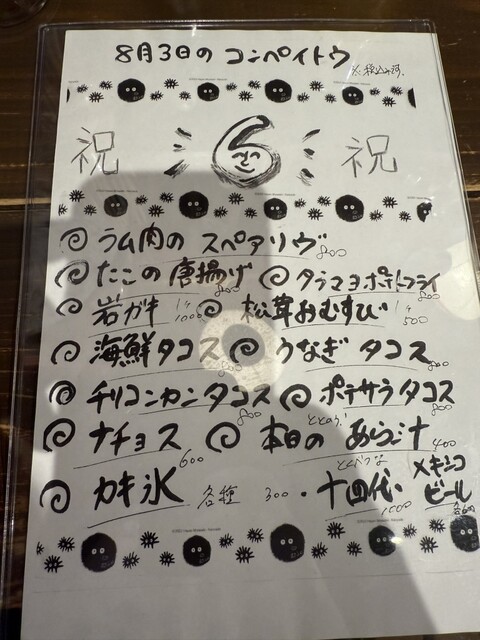 8月3日の コンペイトウ
※税込み可.
祝 6 祝
ラム肉の スペアリブ 800
たこの唐揚げ 800 タラマヨポテトフライ 800
岩ガキ 1ヶ 1000 松茸おむすび 1ヶ 500
海鮮タコス 800 うなぎ タコス 800
チリコンカンタコス 800 ポテサラタコス 800
ナチョス 600 本日の あら汁 400
カキ氷 各種 300. 十四代 1000 メキシコ ビール 各600